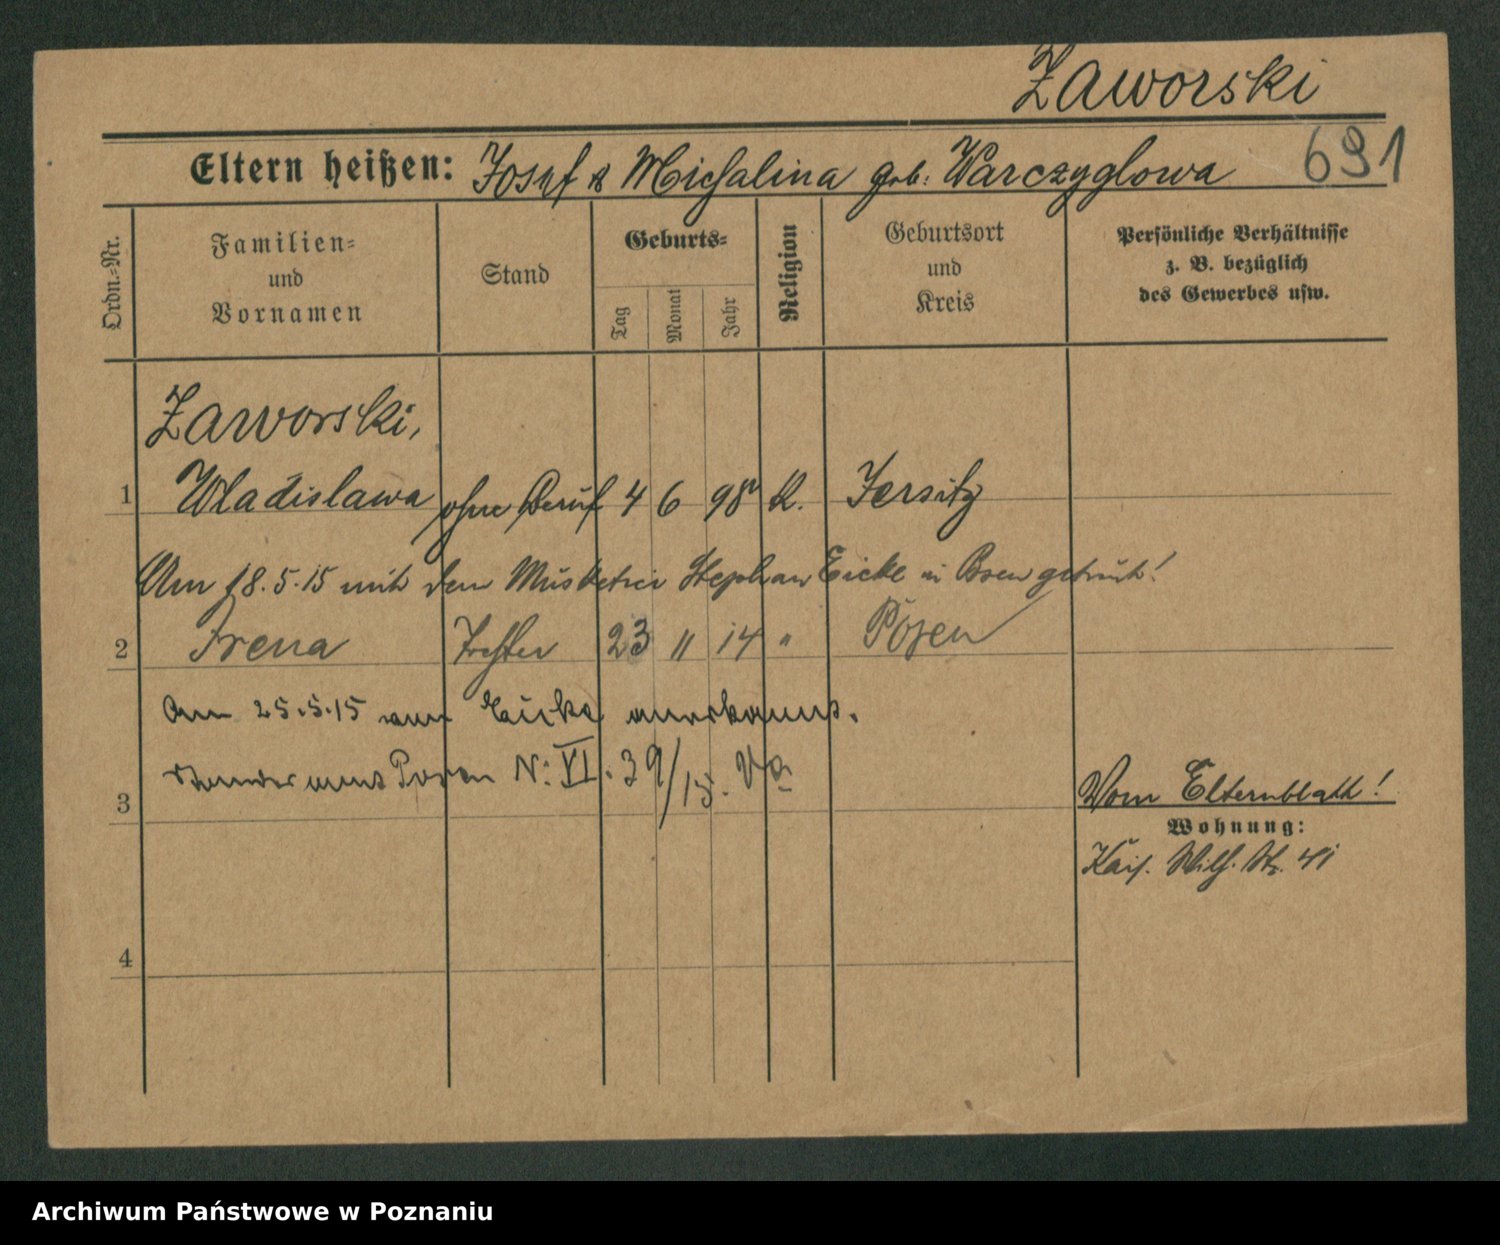 Zaworski
Eltern heißen: Josef & Michalina geb. Warczyglowa 691
Ordn.-Nr.
Familien-
und
Vornamen
Stand
Geburts-
Tag
Monat
Jahr
Religion
Geburtsort
und
Kreis
Persönliche Verhältnisse
z. B. bezüglich
des Gewerbes usw.
Zaworski,
1 Wladislawa ohne Beruf 4 6 98 k. Jersitz
Am 18.5.15 mit dem Musketier Stephan Eicke in Posen getraut!
2 Irena Tochter 23 " 14 " Posen
Am 25.5.15 von Eicke anerkannt.
Standesamt Posen N: VI. 39/15.
3
Vom Elternblatt!
Wohnung:
Kais. Wilh. Str. 41
4
Archiwum Państwowe w Poznaniu